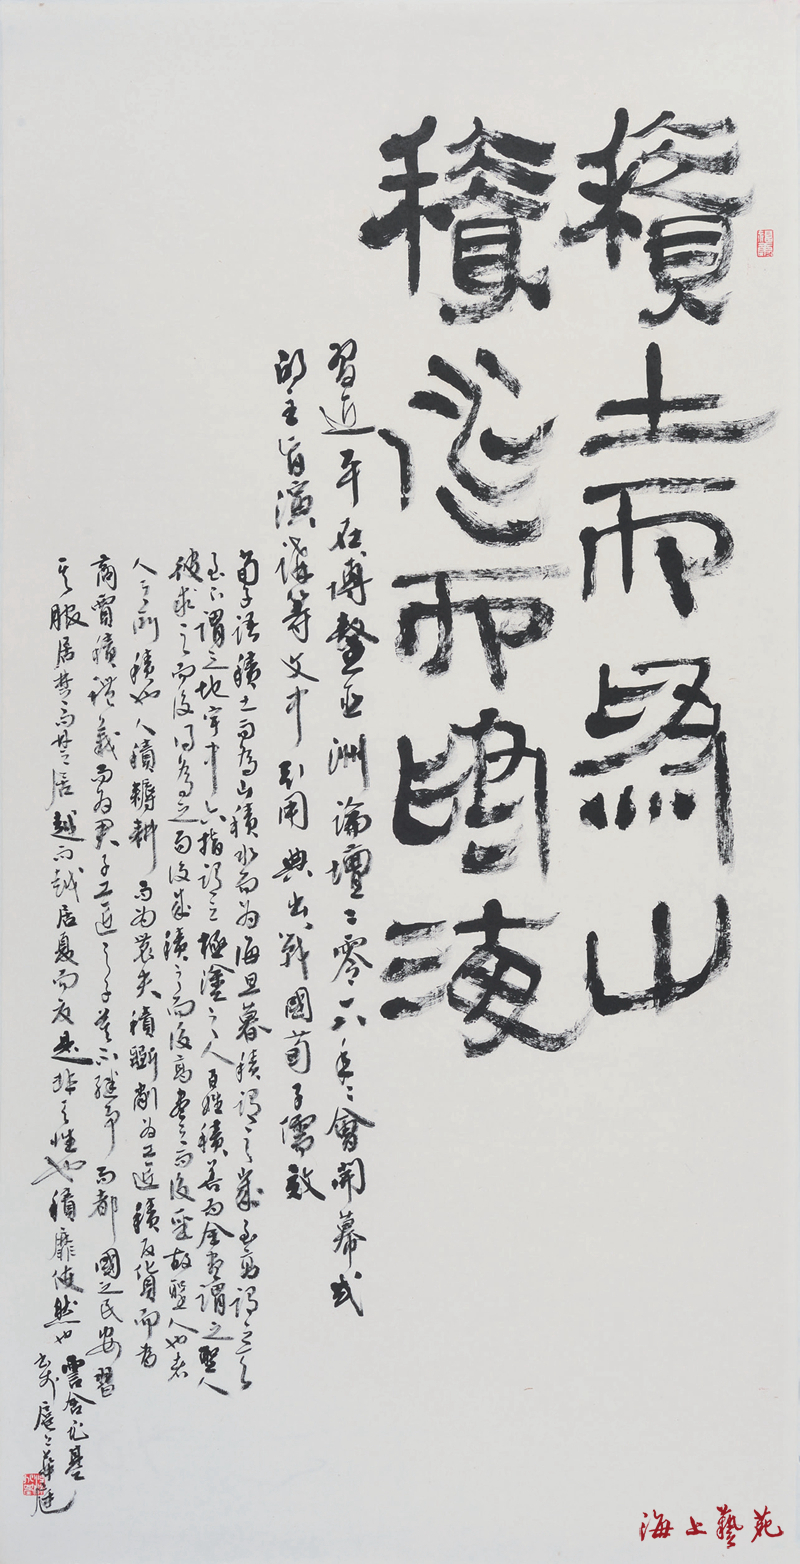 積土而為山
積水而為海
習近平在博鰲亞洲論壇二零一八年年會開幕式
的主旨演講等文中引用典出戰國荀子儒效
荀子語積土而為山積水而為海旦暮積謂之歲至高謂之天
至下謂之地宇中六指謂之極塗之人百姓積善而全盡謂之聖人
彼求之而後得為之而後成積之而後高盡之而後聖故聖人也者
人之所積也人積耨耕而為農夫積斲削為工匠積反貨而為
商賈積禮義而為君子工匠之子莫不繼事而都國之民安習
其服居楚而楚居越而越居夏而夏是非天性也積靡使然也
海上藝苑